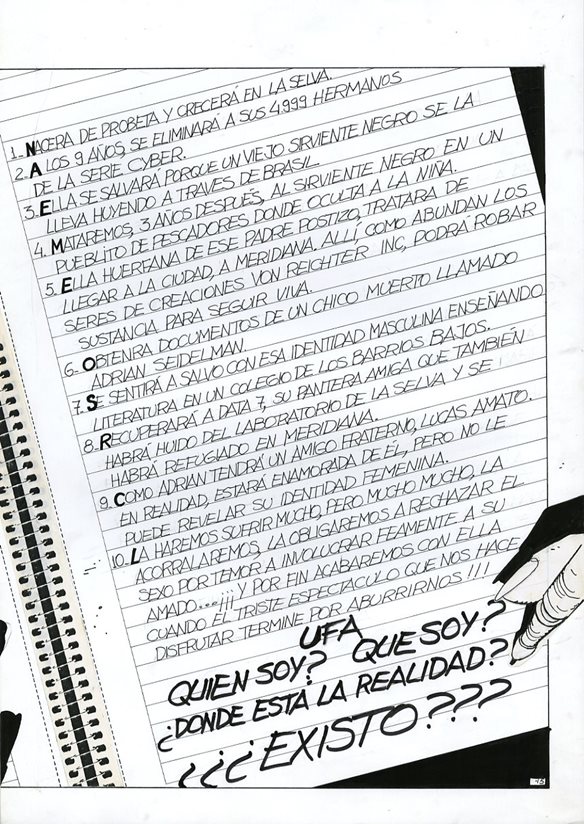 1_ NACERA DE PROBETA Y CRECERÁ EN LA SELVA.
2_ A LOS 9 AÑOS, SE ELIMINARÁ A SUS 4.999 HERMANOS
DE LA SERIE CYBER.
3_ ELLA SE SALVARÁ PORQUE UN VIEJO SIRVIENTE NEGRO SE LA
LLEVA HUYENDO A TRAVES DE BRASIL.
4_ MATAREMOS, 3 AÑOS DESPUÉS, AL SIRVIENTE NEGRO EN UN
PUEBLITO DE PESCADORES, DONDE OCULTA A LA NIÑA.
5_ ELLA HUERFANA DE ESE PADRE POSTIZO, TRATARA DE
LLEGAR A LA CIUDAD, A MERIDIANA. ALLÍ, COMO ABUNDAN LOS
SERES DE CREACIONES VON REICHTER INC, PODRÁ ROBAR
SUSTANCIA PARA SEGUIR VIVA.
6_ OBTENIRA DOCUMENTOS DE UN CHICO MUERTO LLAMADO
ADRIAN SEIDELMAN.
7_ SE SENTIRÁ A SALVO CON ESA IDENTIDAD MASCULINA ENSEÑANDO
LITERATURA EN UN COLEGIO DE LOS BARRIOS BAJOS.
8_ RECUPERARÁ A DATA 7, SU PANTERA AMIGA QUE TAMBIÉN
HABRÁ HUIDO DEL LABORATORIO DE LA SELVA Y SE
HABRÁ REFUGIADO EN MERIDIANA.
9_ COMO ADRIAN TENDRÁ UN AMIGO FRATERNO, LUCAS AMATO.
EN REALIDAD, ESTARÁ ENAMORADA DE ÉL, PERO NO LE
PUEDE REVELAR SU IDENTIDAD FEMENINA.
10_ LA HAREMOS SUFRIR MUCHO, PERO MUCHO MUCHO, LA
ACORRALAREMOS, LA OBLIGAREMOS A RECHAZAR EL
SEXO POR TEMOR A INVOLUCRAR FEAMENTE A SU
AMADO...¡¡¡ Y POR FIN ACABAREMOS CON ELLA
CUANDO EL TRISTE ESPECTACULO QUE NOS HACE
DISFRUTAR TERMINE POR ABURRIRNOS!!!
UFA
QUIEN SOY? QUE SOY?
¿DONDE ESTÁ LA REALIDAD?
¿¿¿EXISTO???